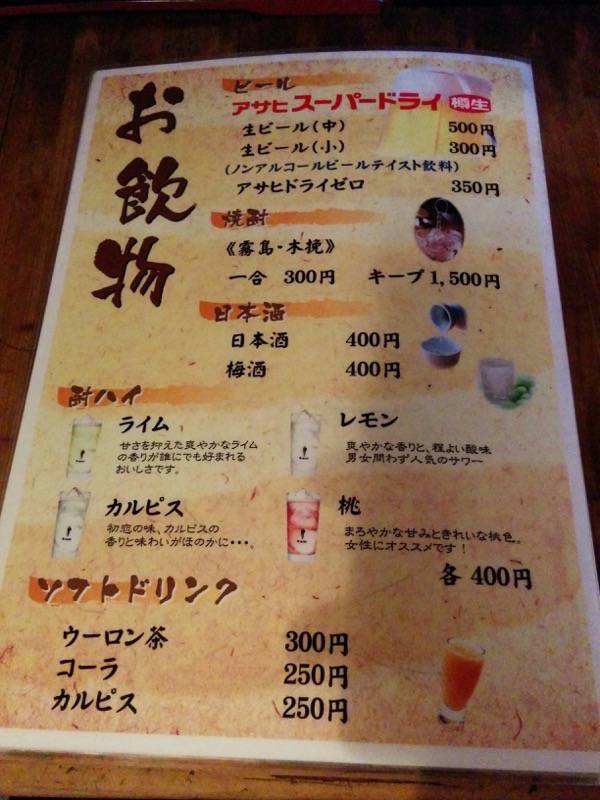 お飲物
ビール
アサヒスーパードライ 樽生
生ビール(中) 500円
生ビール(小) 300円
(ノンアルコールビールテイスト飲料)
アサヒドライゼロ 350円
焼酎
《霧島・木挽》
一合 300円 キープ1,500円
日本酒
日本酒 400円
梅酒 400円
酎ハイ
ライム
甘さを抑えた爽やかなライム
の香りが誰にでも好まれる
おいしさです。
レモン
爽やかな香りと、程よい酸味
男女問わず人気のサワー
カルピス
初恋の味、カルピスの
香りと味わいがほのかに・・・。
桃
まろやかな甘みときれいな桃色。
女性にオススメです!
各400円
ソフトドリンク
ウーロン茶 300円
コーラ 250円
カルピス 250円